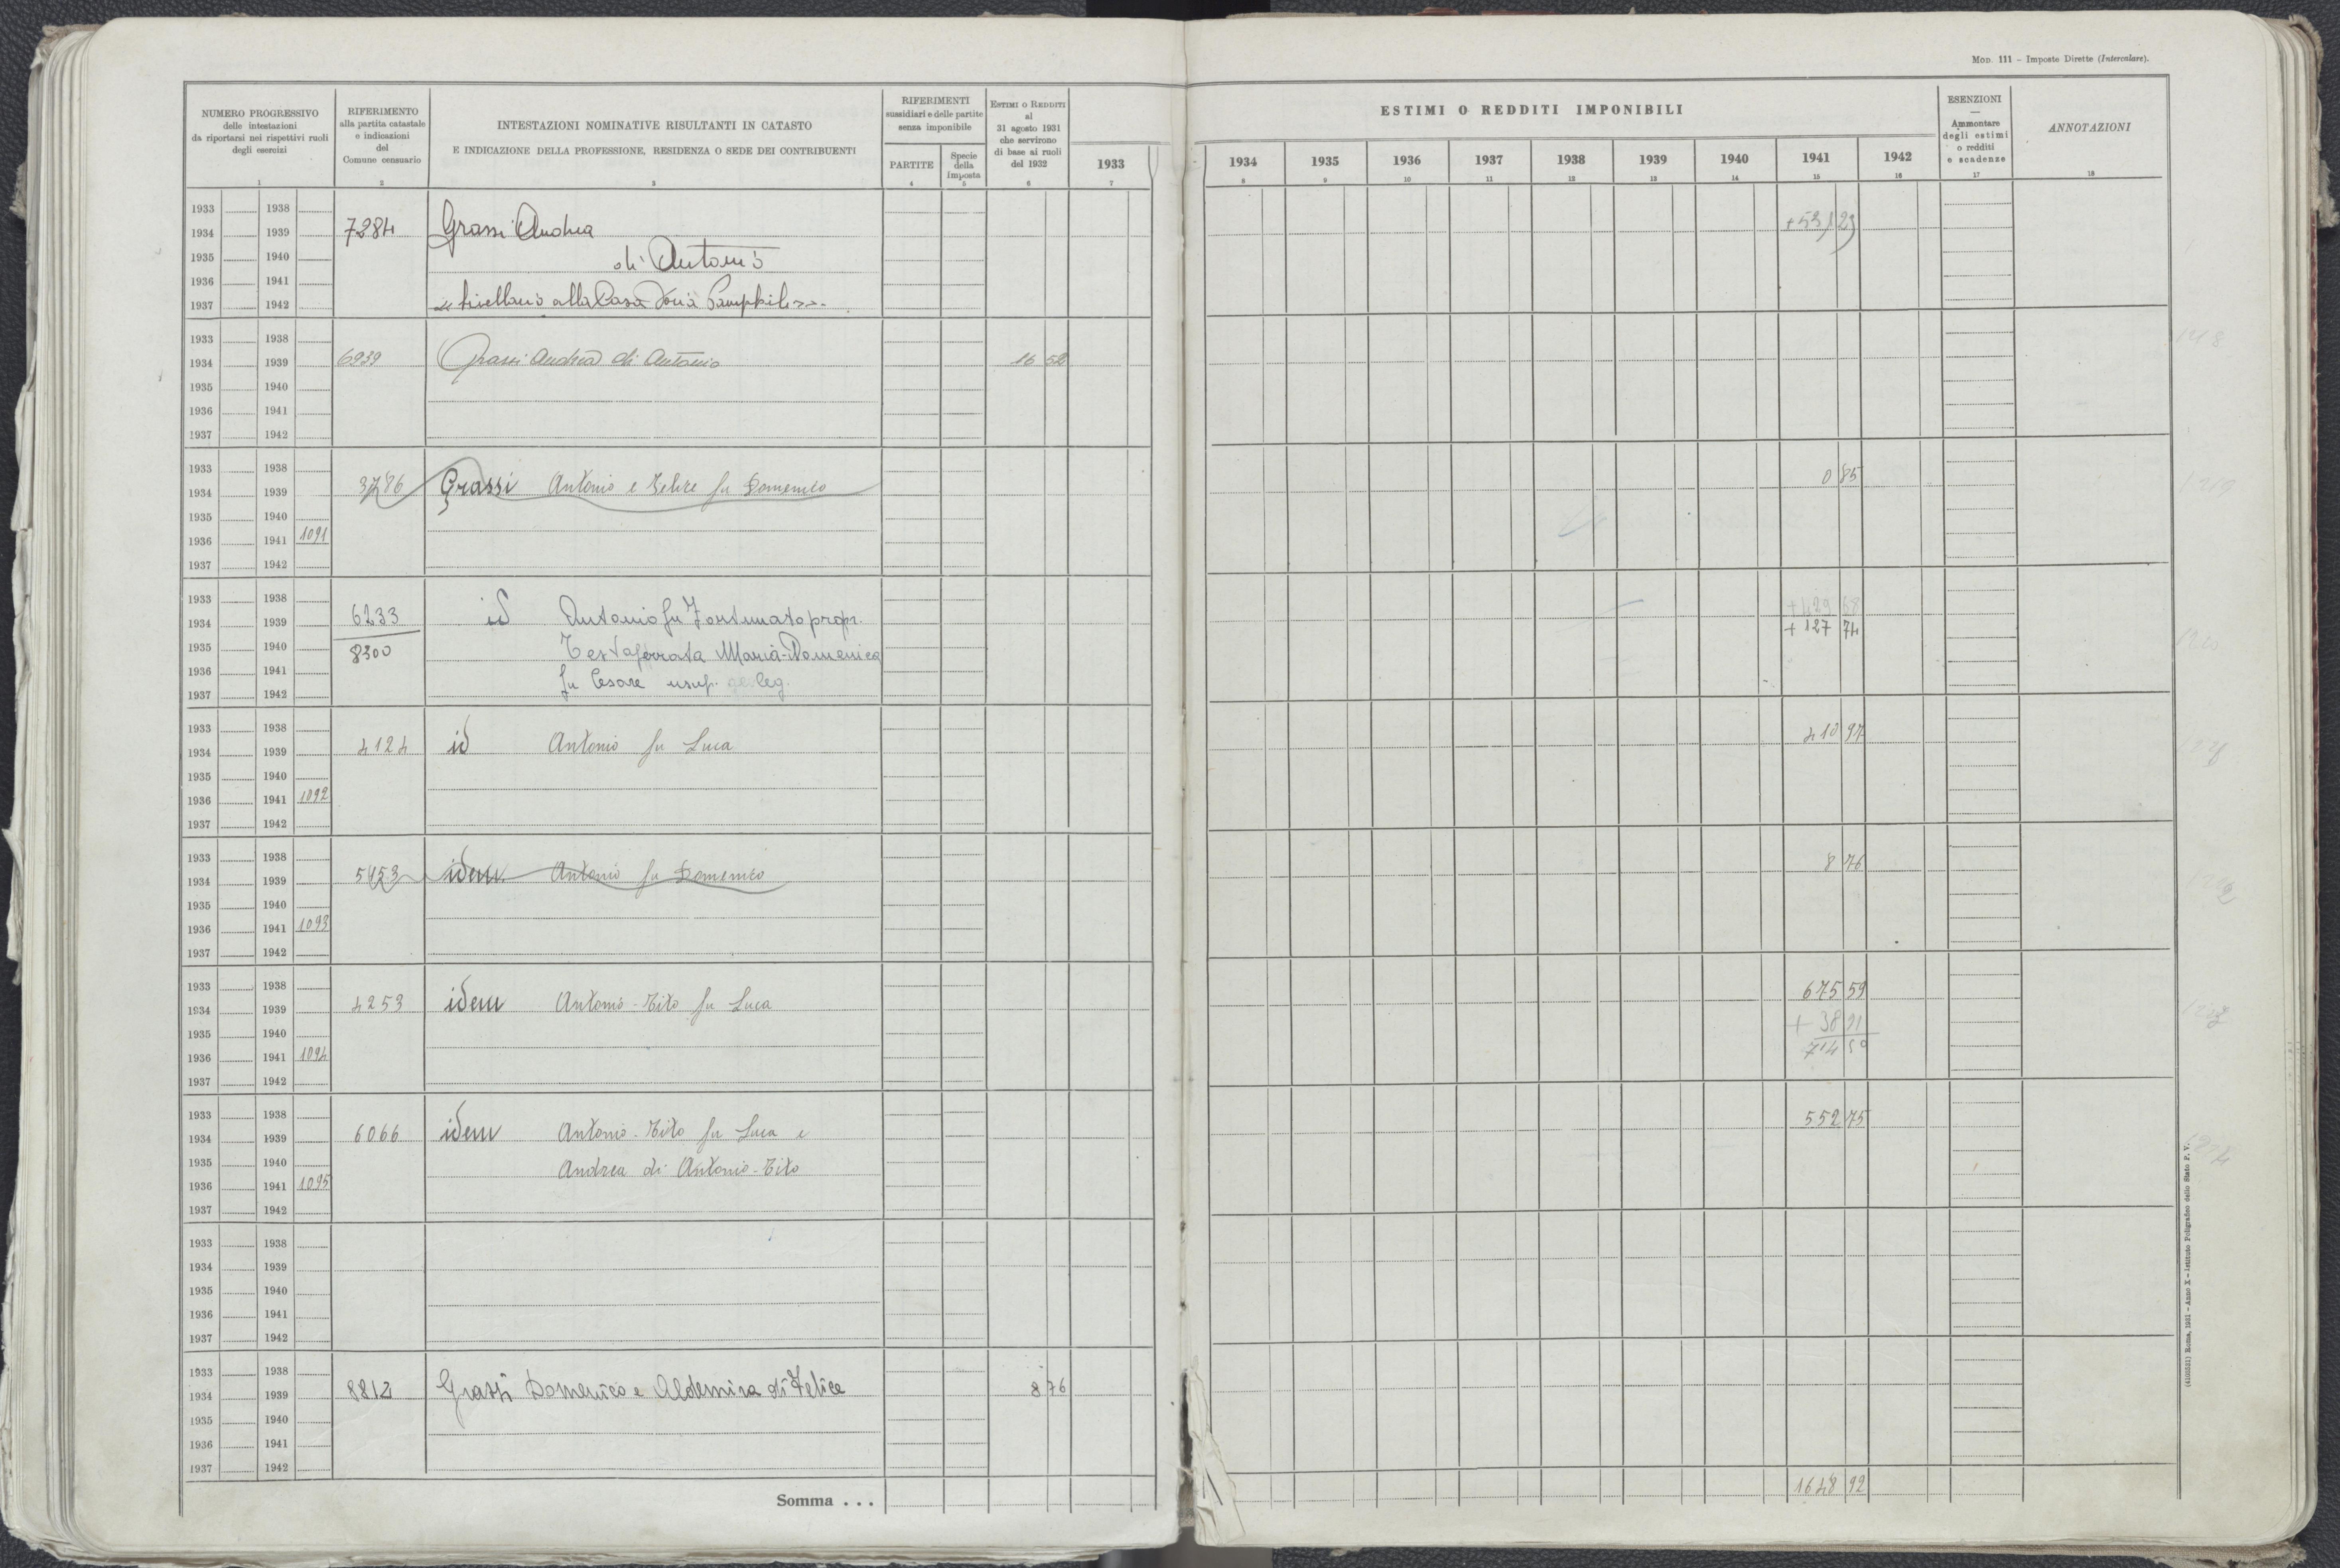 Mod. 111 – Imposte Dirette (Intercalare).
NUMERO PROGRESSIVO
delle intestazioni
da riportarsi nei rispettivi ruoli
degli esercizi
1
RIFERIMENTO
alla partita catastale
e indicazioni
del
Comune censuario
2
INTESTAZIONI NOMINATIVE RISULTANTI IN CATASTO
E INDICAZIONE DELLA PROFESSIONE, RESIDENZA O SEDE DEI CONTRIBUENTI
3
RIFERIMENTI
sussidiari e delle partite
senza imponibile
PARTITE
4
Specie
della
imposta
5
Estimi o Redditi
al
31 agosto 1931
che servirono
di base ai ruoli
del 1932
6
1933
7
ESTIMI O REDDITI IMPONIBILI
1934 1935 1936 1937 1938 1939 1940 1941 1942
8 9 10 11 12 13 14 15 16
ESENZIONI
—
Ammontare
degli estimi
o redditi
e scadenze
17
ANNOTAZIONI
18
1933 1938
1934 1939 7284 Grassi Andrea +53,23
1935 1940 di Antonio
1936 1941
1937 1942 livellario alla Casa Doria Pamphili
1933 1938
1934 1939 6939 Grassi Andrea di Antonio 16 52
1935 1940
1936 1941
1937 1942
1933 1938
1934 1939 3786 Grassi Antonio e Felice fu Domenico 0 85
1935 1940
1936 1941 1091
1937 1942
1933 1938
1934 1939 6233 id Antonio fu Fortunato propr. + 127 74
1935 1940 8300 Testaferrata Maria-Domenica
1936 1941 fu Cesare usuf. leg.
1937 1942
1933 1938
1934 1939 4124 id Antonio fu Luca 410 97
1935 1940
1936 1941 1092
1937 1942
1933 1938
1934 1939 5453 idem Antonio fu Domenico 8 76
1935 1940
1936 1941 1093
1937 1942
1933 1938 675 59
1934 1939 4253 idem Antonio-Tito fu Luca + 38 91
1935 1940 714 50
1936 1941 1094
1937 1942
1933 1938 552 75
1934 1939 6066 idem Antonio-Tito fu Luca e
1935 1940 Andrea di Antonio-Tito
1936 1941 1095
1937 1942
1933 1938
1934 1939
1935 1940
1936 1941
1937 1942
1933 1938
1934 1939 8812 Grassi Domenico e Aldemira di Felice 8 76
1935 1940
1936 1941
1937 1942
Somma . . . 1648 92
(4105821) Roma, 1931 - Anno X - Istituto Poligrafico dello Stato P. V.